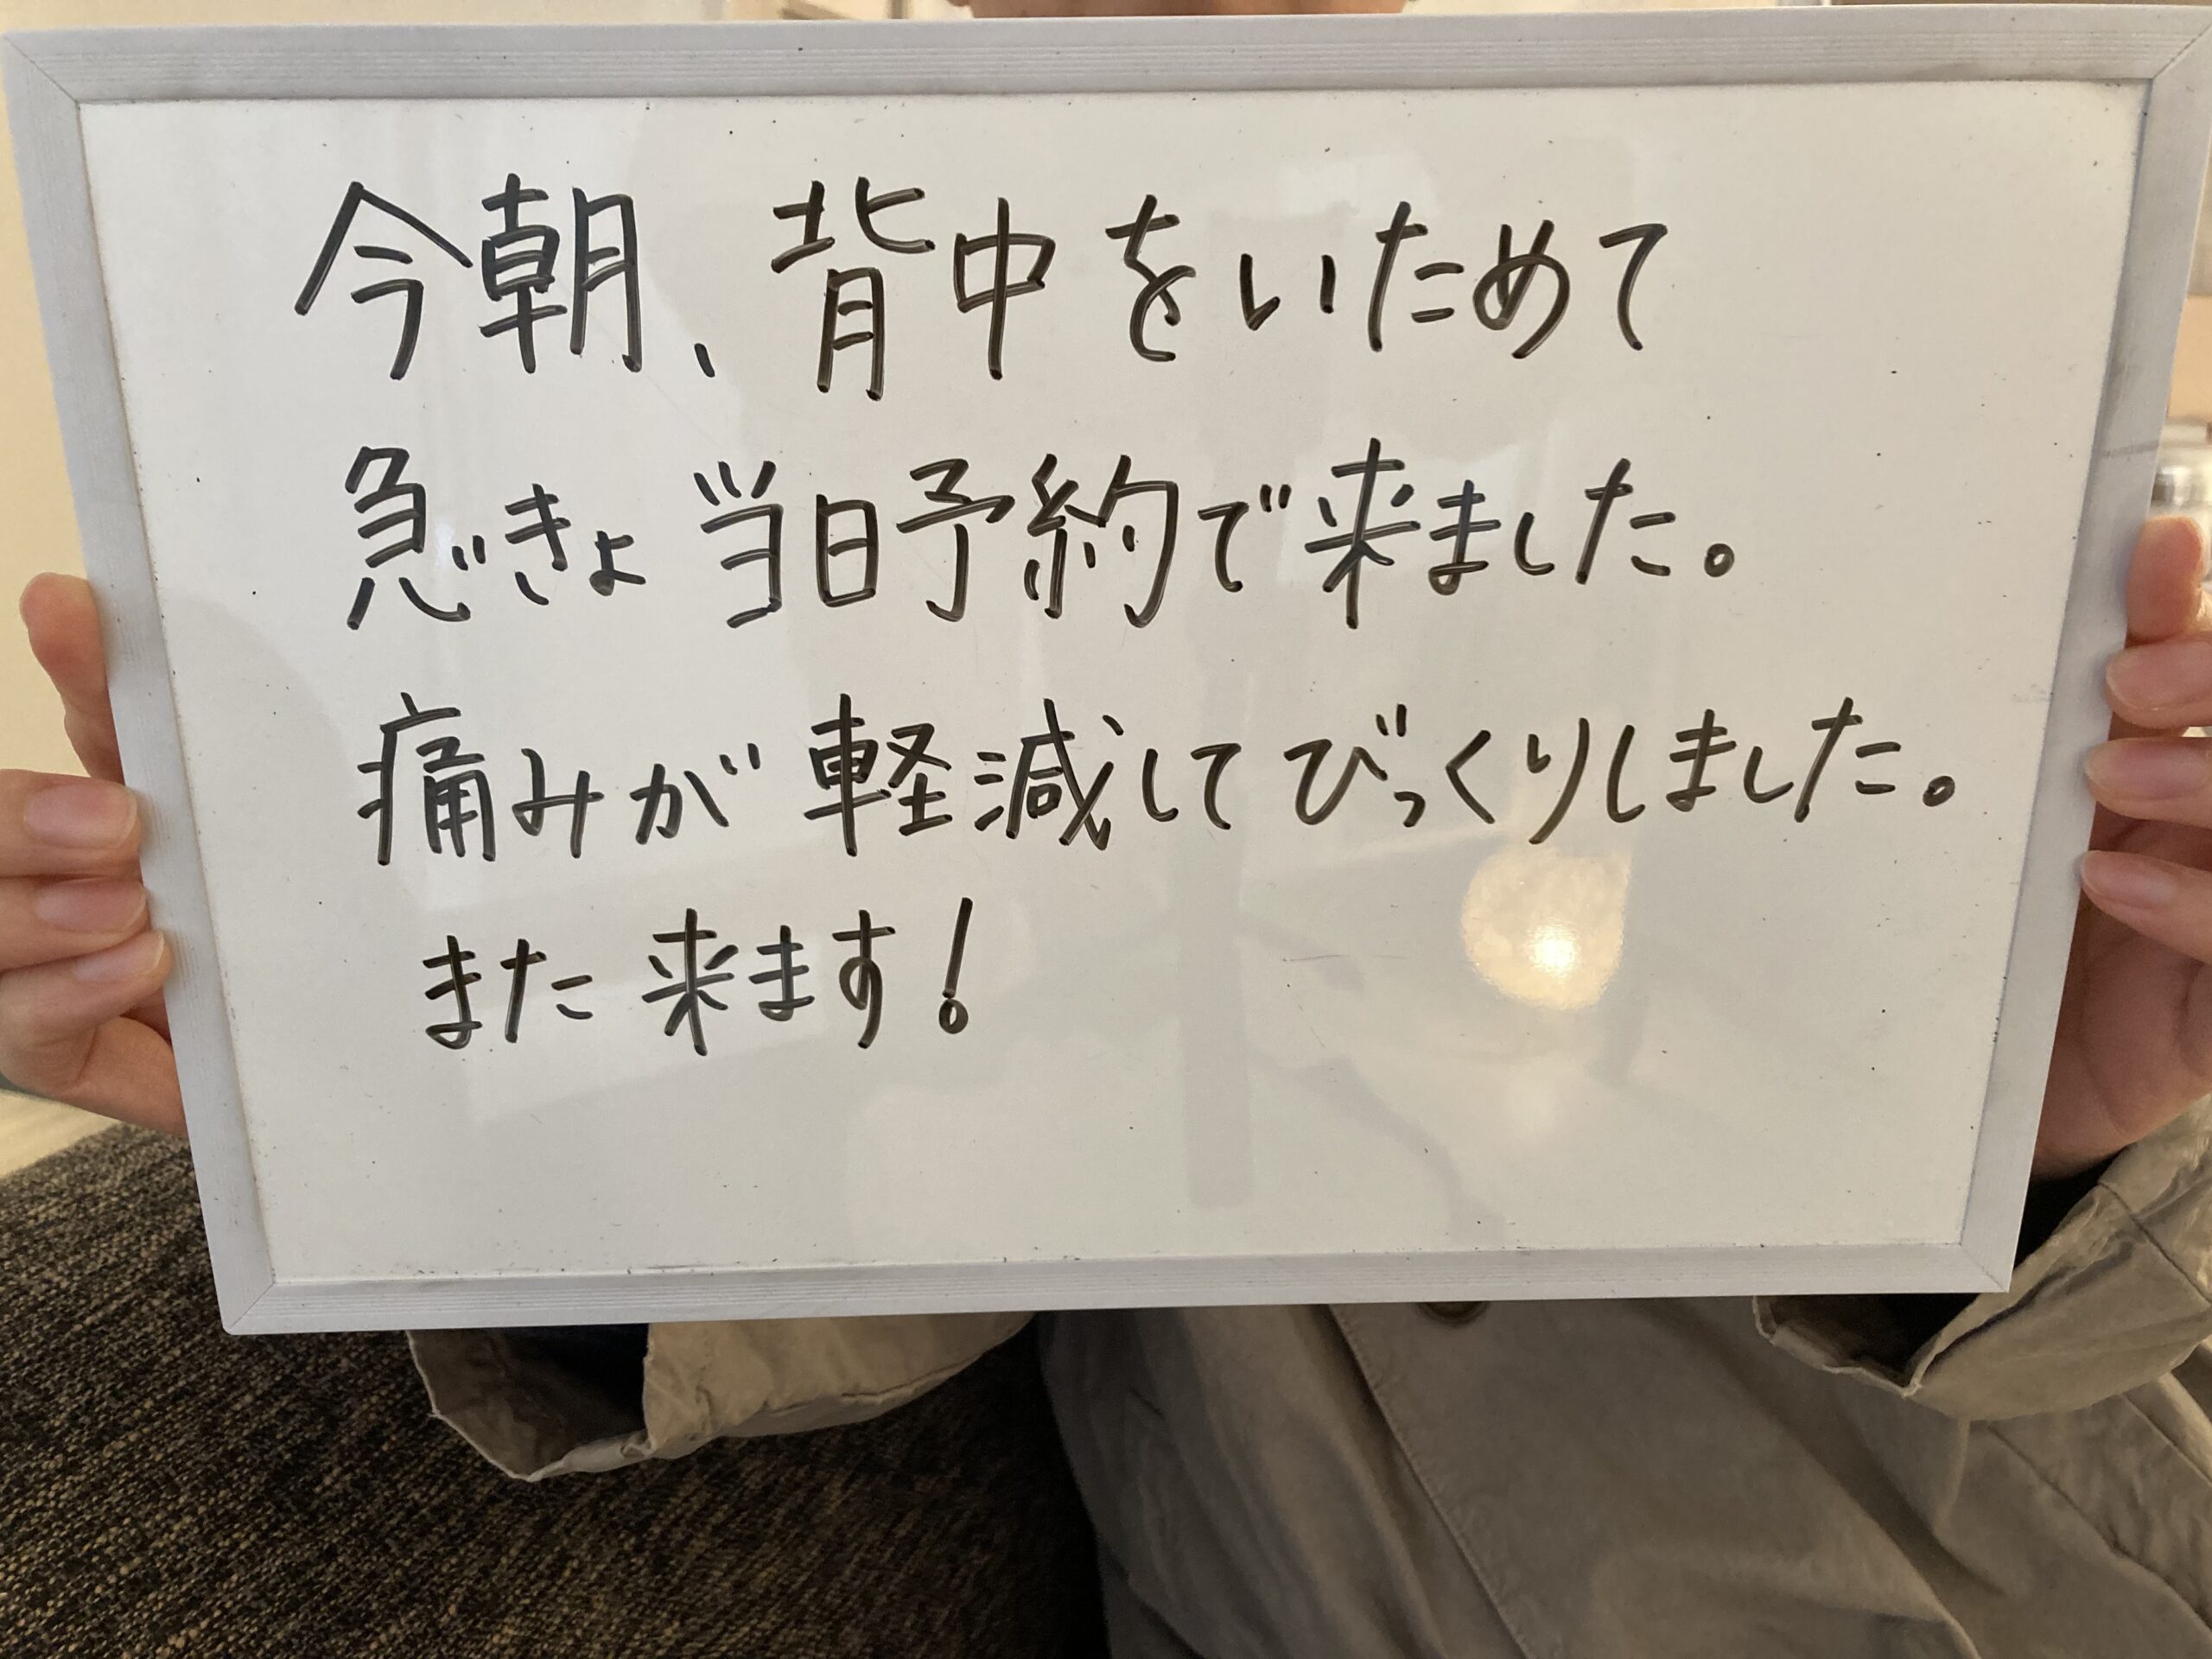 今朝、背中をいためて
急きょ当日予約で来ました。
痛みが軽減してびっくりしました。
また来ます!